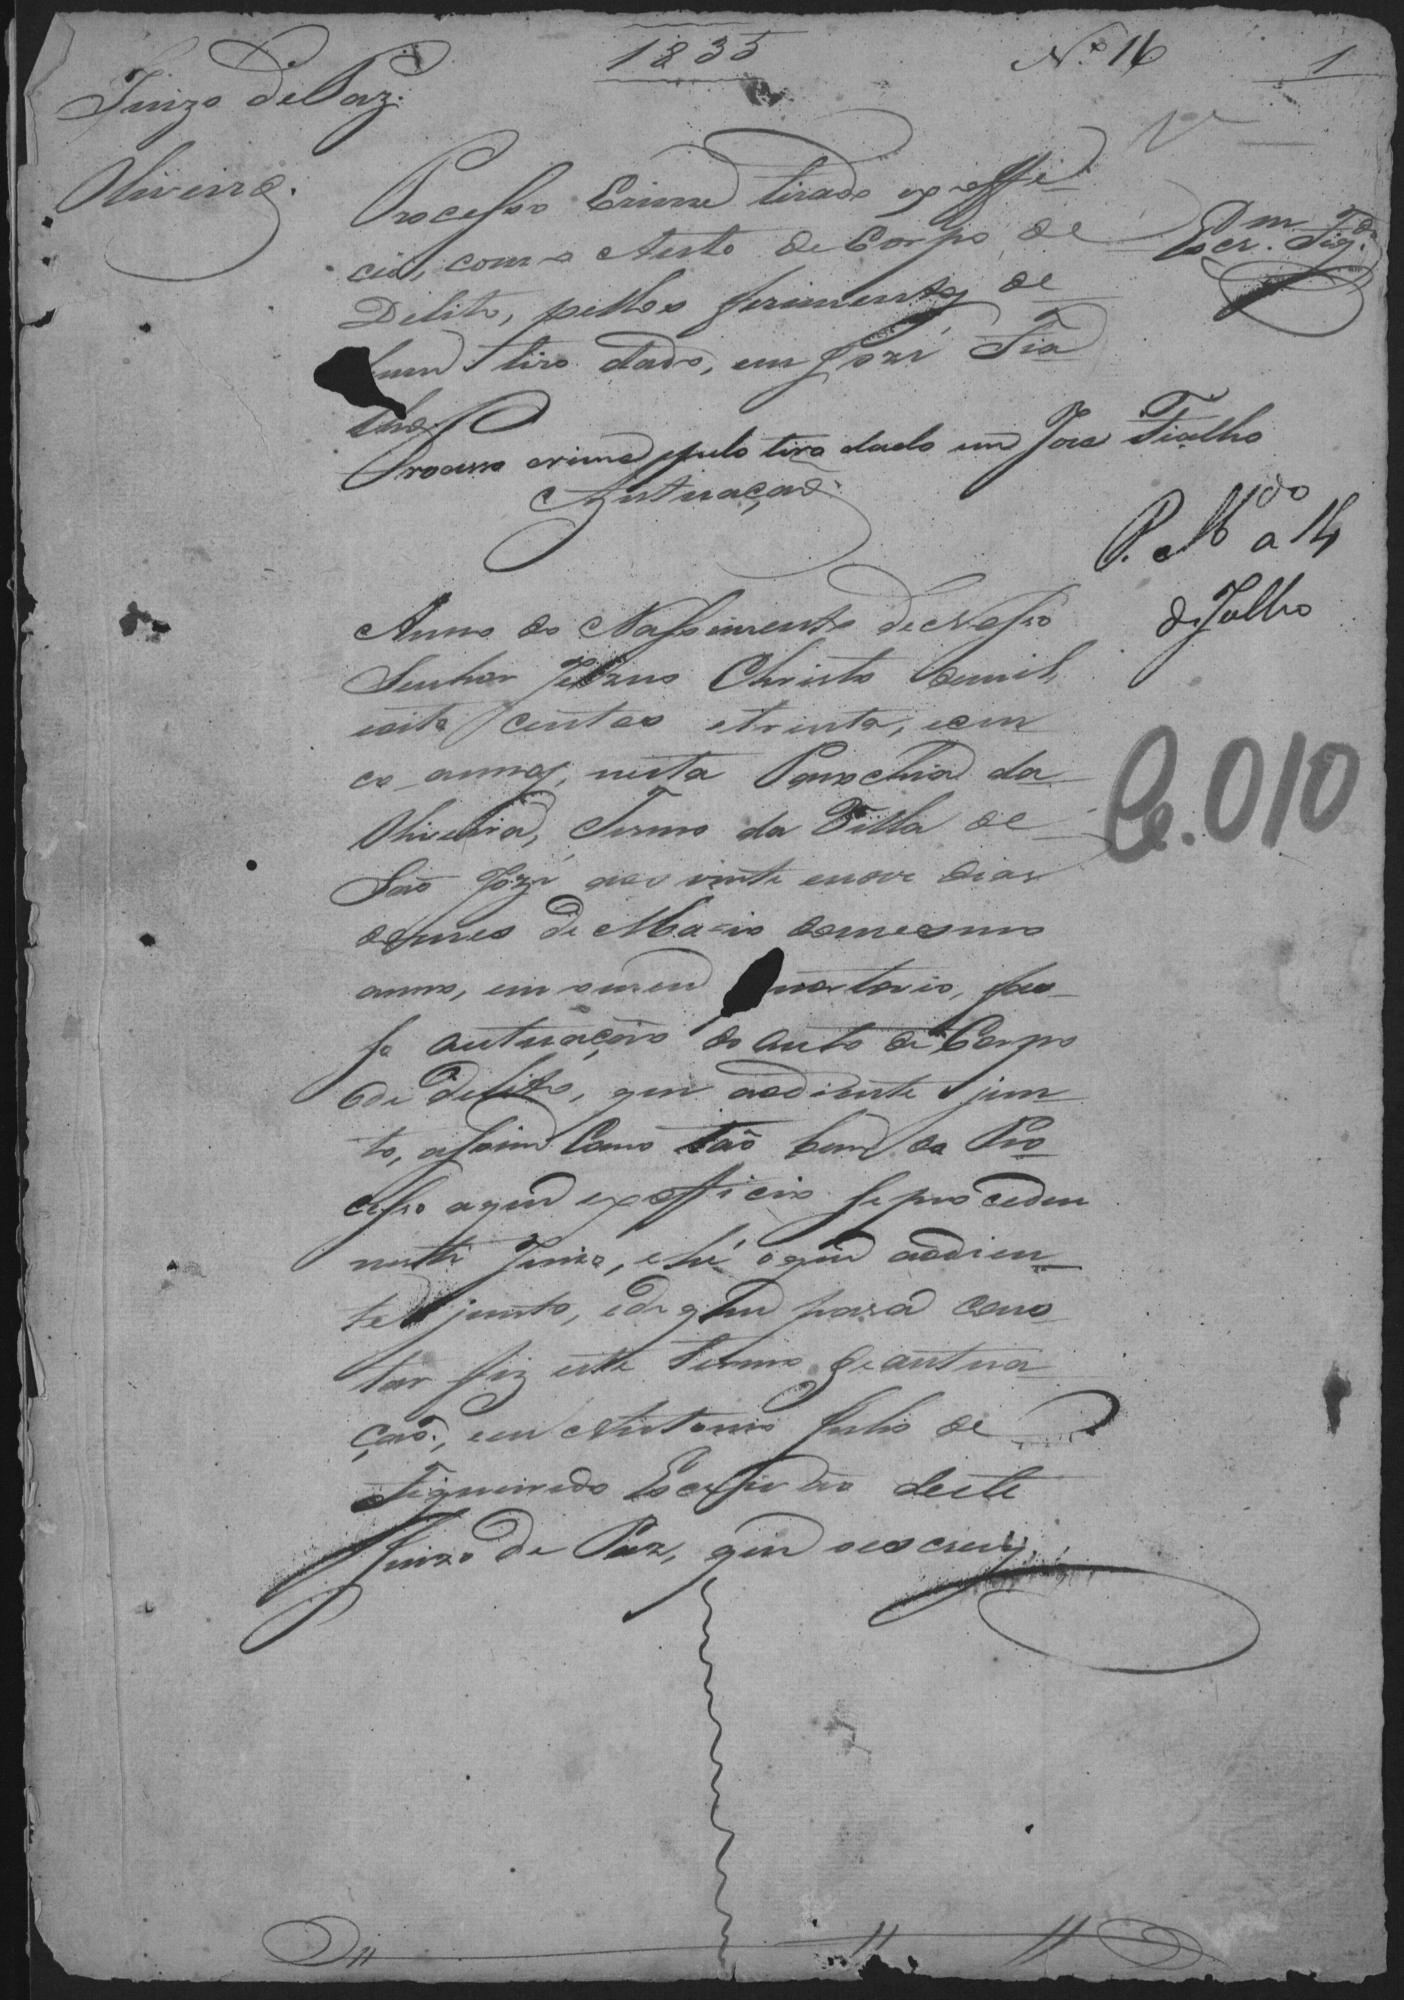 1835
Nº 16
1
Juizo de Paz.
Oliveira.
Processo Crime tirado ex offi-
cio, com o Auto de Corpo de
Delicto, pellos ferimentos de
hum tiro dado, em Jozé Fia
lho
Escr. Fig.do
Processo crime pelo tiro dado em Jose Fialho
Autuação.
P. Mdo a 14
de Julho
Anno do Nassimento de Nosso
Senhor Jezus Christo de mil
oito centos e trinta, e cin
co annos, nesta Parochia da
Oliveira, Termo da Villa de
São Jozé aos vinte e nove dias
do mes de Maio do mesmo
anno, em o meu Cartorio, fa
ço autuação do auto de Corpo
de delito, que ao diente jun
to, assim Como tão bem do Pro
cesso a que ex officio se procedeu
neste Juizo, e hé o que ao dien-
te junto, e de que para cons
tar fiz este Termo de autua
ção, eu Antonio Julio de
Figueiredo Escrivão deste
Juizo de Paz, que o escrevy.
Ce.010